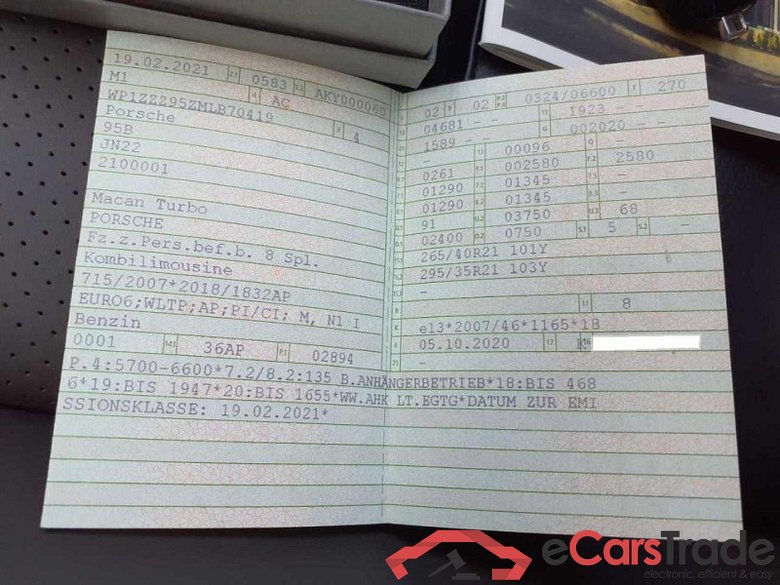 19.02.2021 2.1 0583 2.2 AKY000060
M1 4 AC
WP1ZZZ95ZMLB70419 3 4
Porsche
95B
JN22
2100001
Macan Turbo
PORSCHE
Fz.z.Pers.bef.b. 8 Spl.
Kombilimousine
715/2007*2018/1832AP
EURO6;WLTP;AP;PI/CI; M, N1 I
Benzin
0001 14.1 36AP P.1 02894
02 9 02 P.2 P.4 0324/06600 T 270
04681 - - 19 1923 - -
1589 - - G 002020 - -
- 13 00096 Q
0261 F.1 002580 F.2 2580
01290 7.2 01345 7.3 -
01290 8.2 01345 8.3 -
91 U.2 03750 U.3 68
02400 O.2 0750 S.1 5 S.2 -
265/40R21 101Y
295/35R21 103Y
-
- 11 8
K e13*2007/46*1165*18
6 05.10.2020 17 16
21 -
P.4:5700-6600*7.2/8.2:135 B.ANHÄNGERBETRIEB*18:BIS 468
6*19:BIS 1947*20:BIS 1655*WW.AHK LT.EGTG*DATUM ZUR EMI
SSIONSKLASSE: 19.02.2021*
eCarsTrade
electronic, efficient & easy